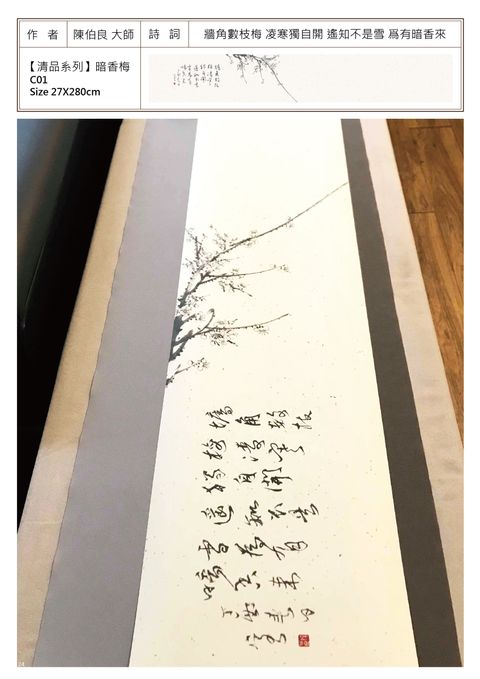 作 者
陳伯良 大師
詩 詞
牆角數枝梅 凌寒獨自開 遙知不是雪 爲有暗香來
【清品系列】暗香梅
C01
Size 27X280cm
墻角數枝
梅凌寒
獨自開
遙知不是
雪為有
暗香來
24